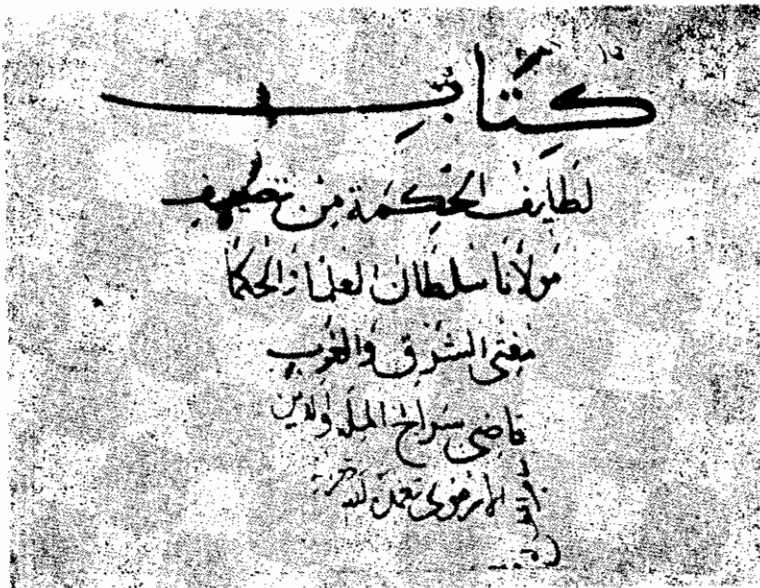 كتاب
لطايف الحكمة من تصنيف
مولانا سلطان العلماء والحكما
مفتى الشرق والغرب
قاضى سراج الملة والدين
الارموى تغمده الله